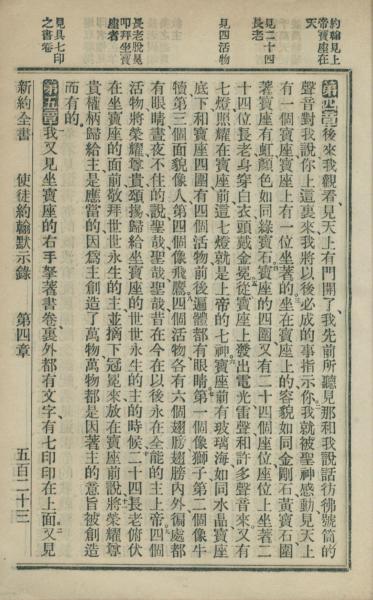 約翰見上
帝寶座在
天
見二十四
長老
見四活物
長老脫冕
叩拜坐寶
座者
見具七印
之書卷
第四章後來我觀看、見天上有門開了、我先前所聽見那和我說話彷彿號筒的
聲音、對我說、你上這裏來、我將以後必成的事指示你、我就被聖神感動、見天上
有一個寶座、寶座上有一位坐著的、坐在寶座上的容貌如同金剛石黃寶石、圍
著寶座有虹、顏色如同綠寶石、寶座的四圍又有二十四個座位、座位上坐著二
十四位長老、身穿白衣、頭戴金冕、從寶座上發出電光雷聲和許多聲音來、又有
七燈照耀在寶座前、這七燈就是上帝的七神、寶座前有玻璃海如同水晶、寶座
底下和寶座四圍有四個活物、前後遍體都有眼睛、第一個像獅子、第二個像牛
犢、第三個面貌像人、第四個像飛鷹、四個活物各有六個翅膀、翅膀內外徧處都
有眼睛、晝夜不住的說、聖哉聖哉聖哉、昔在今在以後永在全能的主上帝、四個
活物將榮耀尊貴頌揚歸給坐寶座的世世永生的主的時候、二十四長老俯伏
在坐寶座的面前、敬拜世世永生的主、並摘下冠冕來放在寶座前說、將榮耀尊
貴權柄歸給主是應當的、因爲主創造了萬物、萬物都是因著主的意旨被創造
而有的、
第五章我又見坐寶座的右手拏著書卷、裏外都有文字、有七印印在上面、又見
新約全書 使徒約翰默示錄 第四章 五百二十三